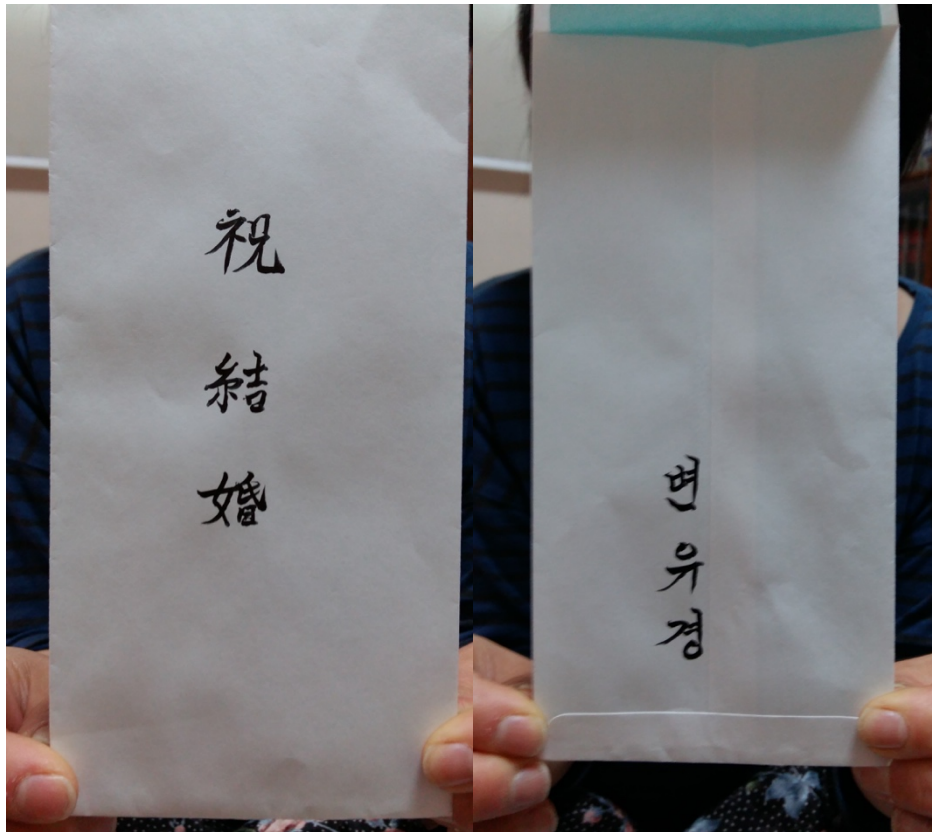 祝結婚
변유경